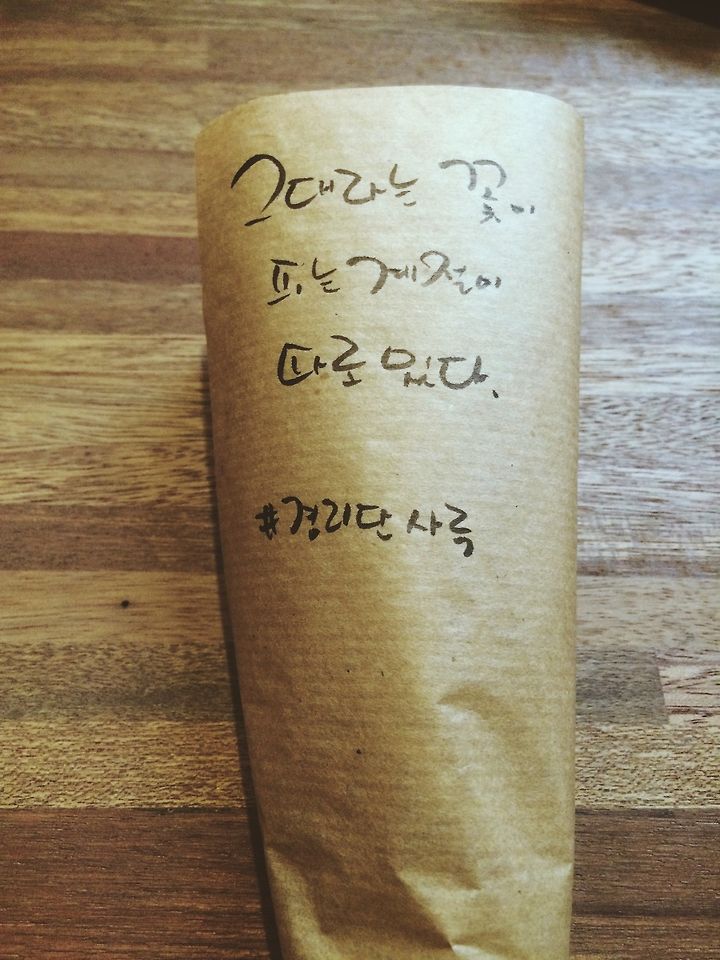 그대라는 꽃이
피는 계절이
따로 있다.
#경리단 사루